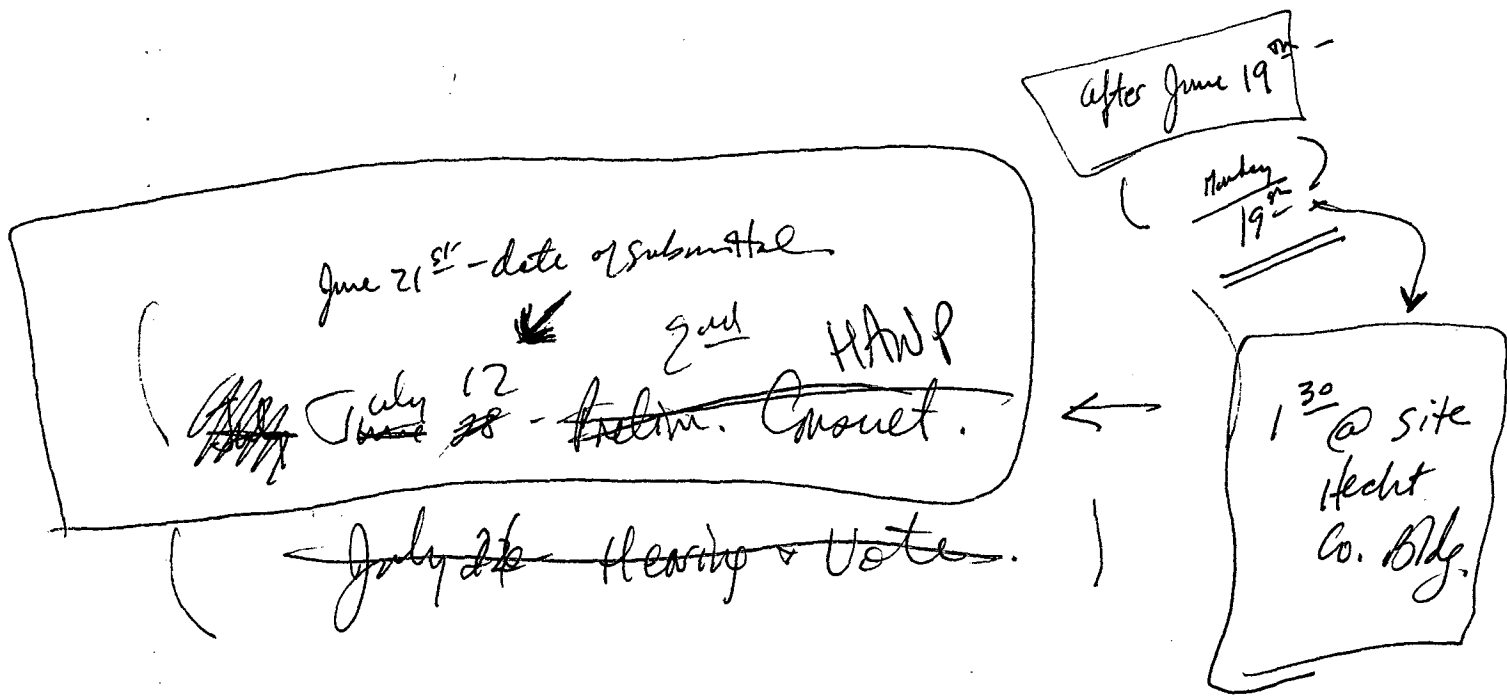 after June 19th -
Monday
19th
June 21st - date of submittal
2nd HAWP
July 12
June 28 - Prelim. Consult.
July 26 - Hearing & Vote.
1 30 @ site
Hecht
Co. Bldg.